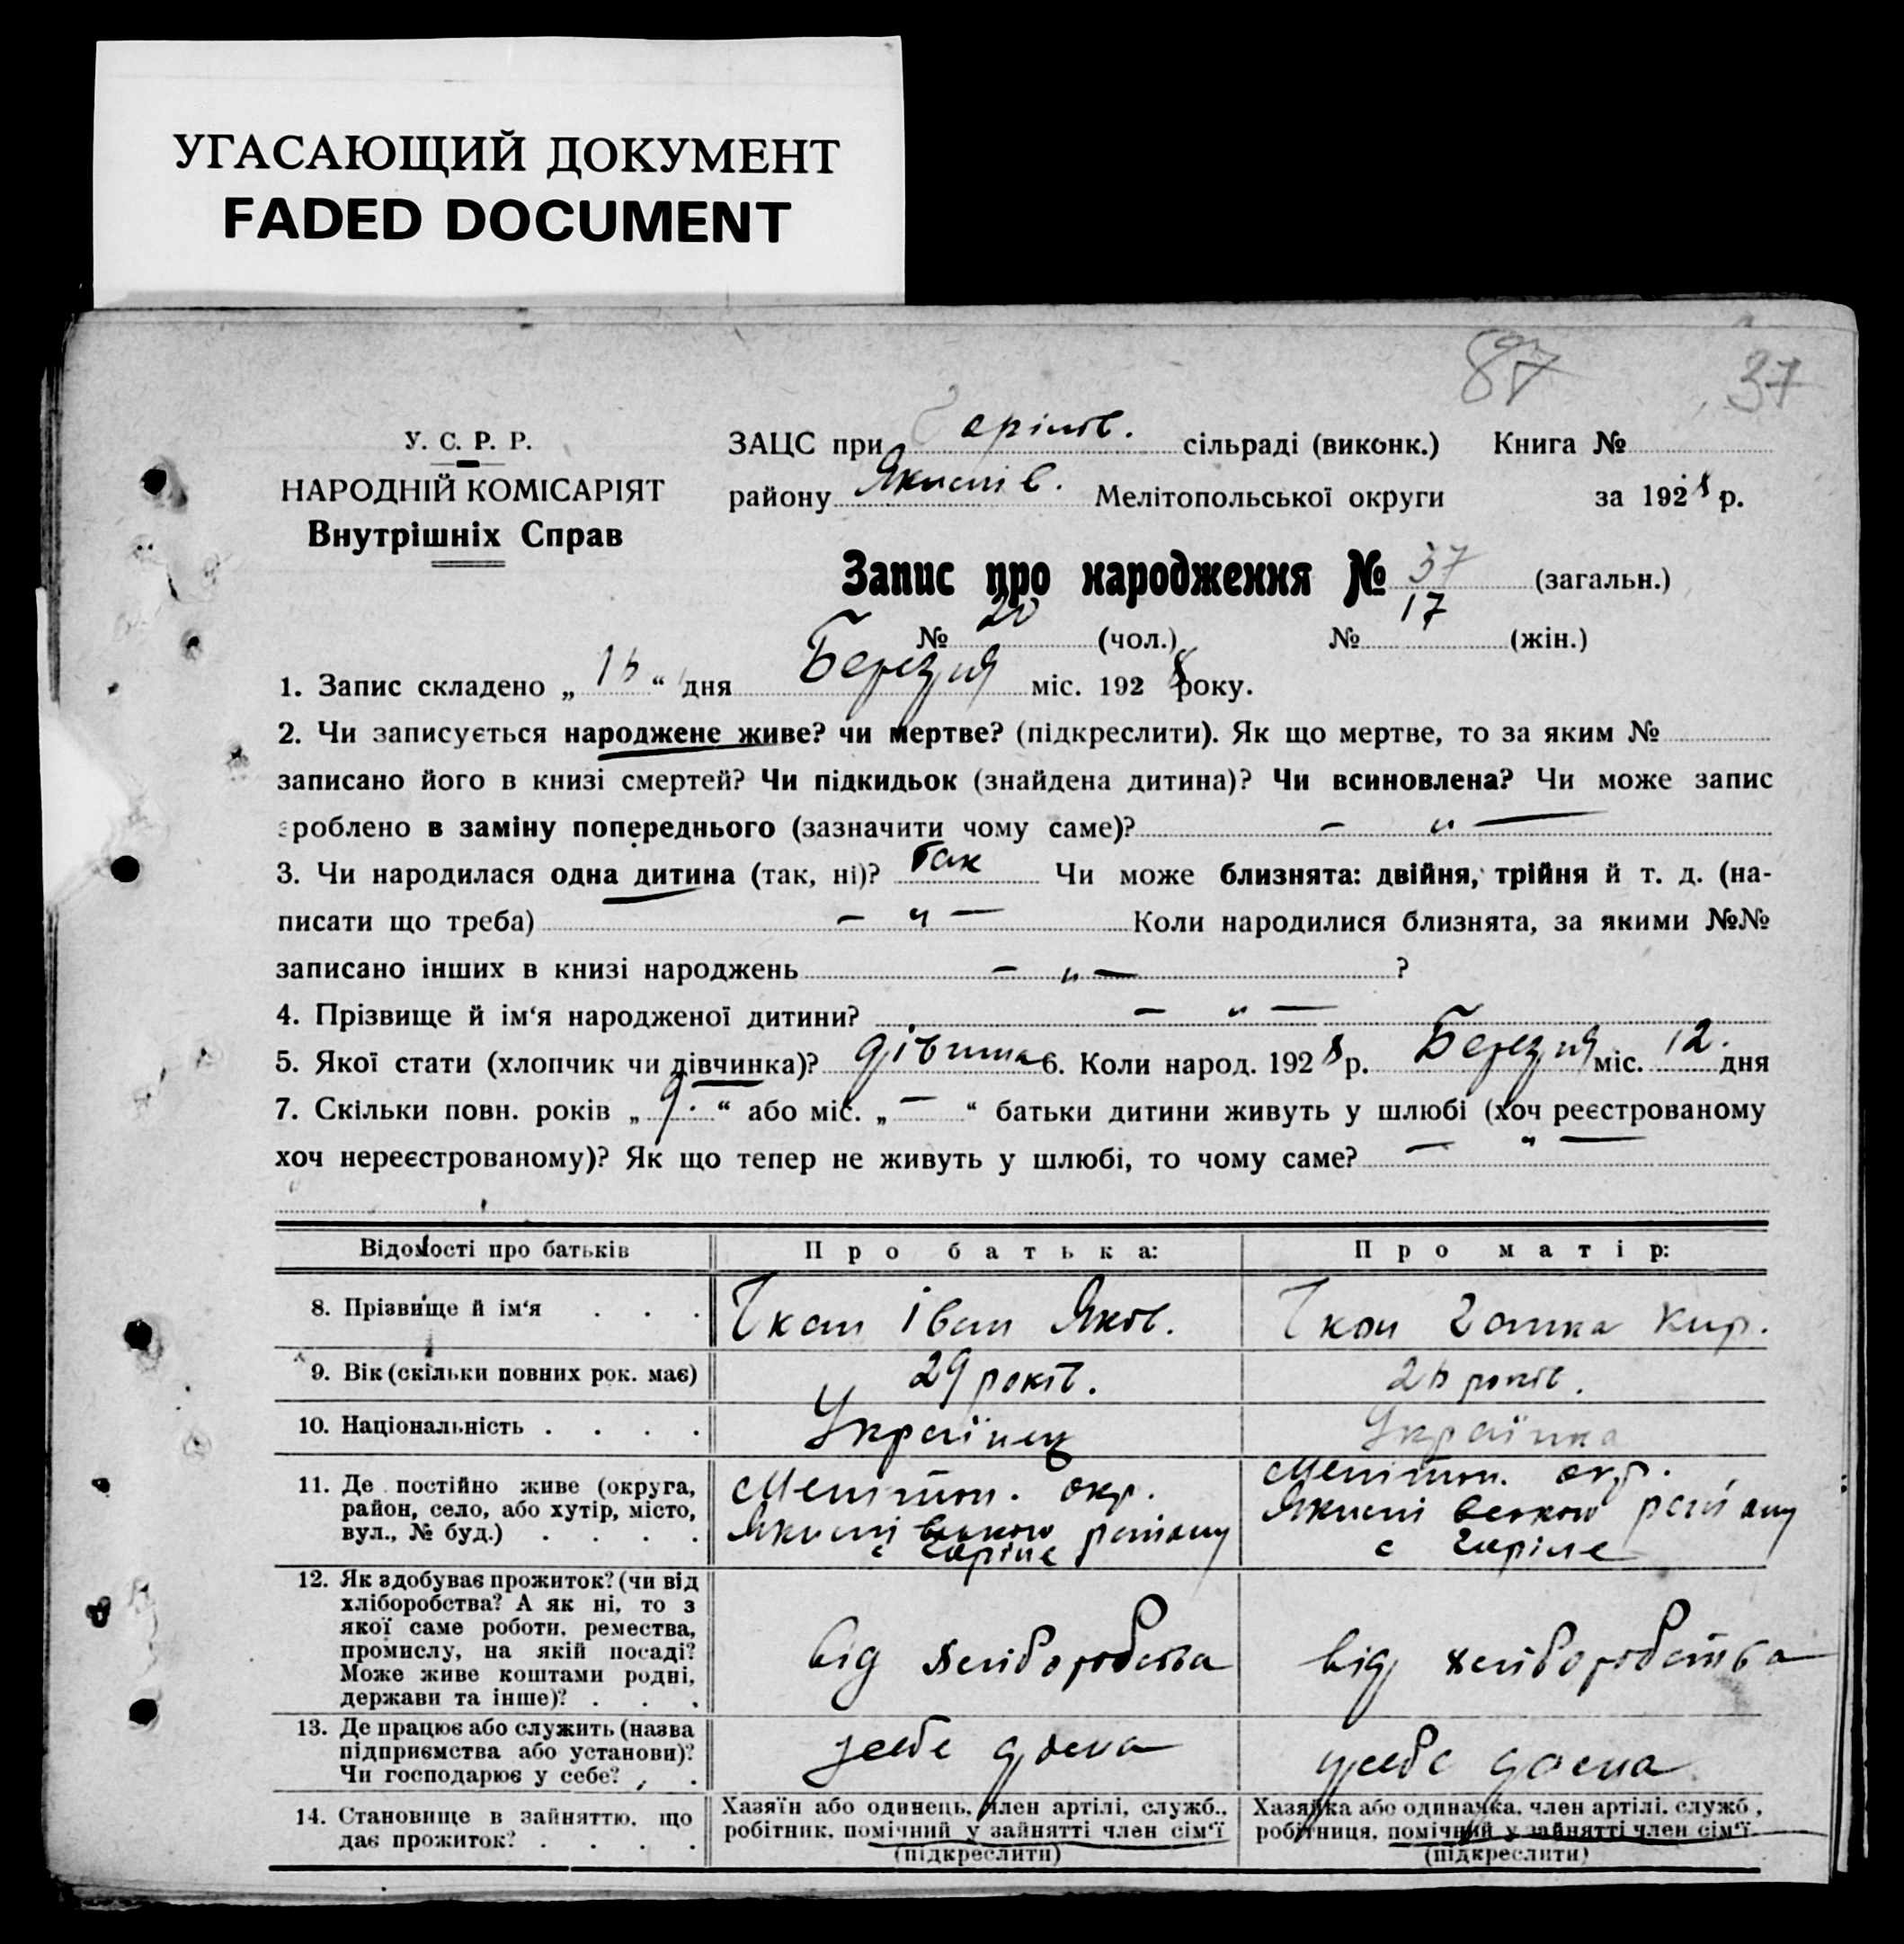 УГАСАЮЩИЙ ДОКУМЕНТ
FADED DOCUMENT
87 37
У. С. Р. Р.
НАРОДНІЙ КОМІСАРІЯТ
Внутрішніх Справ
ЗАЦС при сільраді (виконк.) Книга №
району Якимів. Мелітопольської округи за 1928 р.
Запис про народження № 37 (загальн.)
№ 20 (чол.) № 17 (жін.)
1. Запис складено „ “ дня Березня міс. 1928 року.
2. Чи записується народжене живе? чи мертве? (підкреслити). Як що мертве, то за яким №
записано його в книзі смертей? Чи підкидьок (знайдена дитина)? Чи всиновлена? Чи може запис
зроблено в заміну попереднього (зазначити чому саме)? — „ —
3. Чи народилася одна дитина (так, ні)? Так Чи може близнята: двійня, трійня й т. д. (на-
писати що треба) — „ — Коли народилися близнята, за якими №№
записано інших в книзі народжень — „ — ?
4. Прізвище й ім‘я народженої дитини? — „ —
5. Якої стати (хлопчик чи дівчинка)? 6. Коли народ. 1928 р. Березня міс. 12. дня
7. Скільки повн. років „ 9. “ або міс. „ — “ батьки дитини живуть у шлюбі (хоч реєстрованому
хоч нереєстрованому)? Як що тепер не живуть у шлюбі, то чому саме? — „ —
Відомості про батьків Про батька: Про матір:
8. Прізвище й ім‘я . . . Ткач Іван Яків. Ткач Ганка Кир.
9. Вік (скільки повних рок. має) 29 років. років.
10. Національність . . . . Українец Українка
11. Де постійно живе (округа,
район, село, або хутір, місто,
вул., № буд.) . . . .
Мелітоп. окр.
Якимівського району
с
Мелітоп. окр.
Якимівського району
с
12. Як здобуває прожиток? (чи від
хліборобства? А як ні, то з
якої саме роботи, ремества,
промислу, на якій посаді?
Може живе коштами родні,
держави та інше)? . . .
від хліборобства
від хліборобства
13. Де працює або служить (назва
підприємства або установи)?
Чи господарює у себе? . .
у себе дома
у себе дома
14. Становище в зайняттю, що
дає прожиток? . . . .
Хазяїн або одинець, член артілі, служб.,
робітник, помічний у зайнятті член сім‘ї
(підкреслити)
Хазяйка або одиначка, член артілі, служб.,
робітниця, помічний у зайнятті член сім‘ї
(підкреслити)